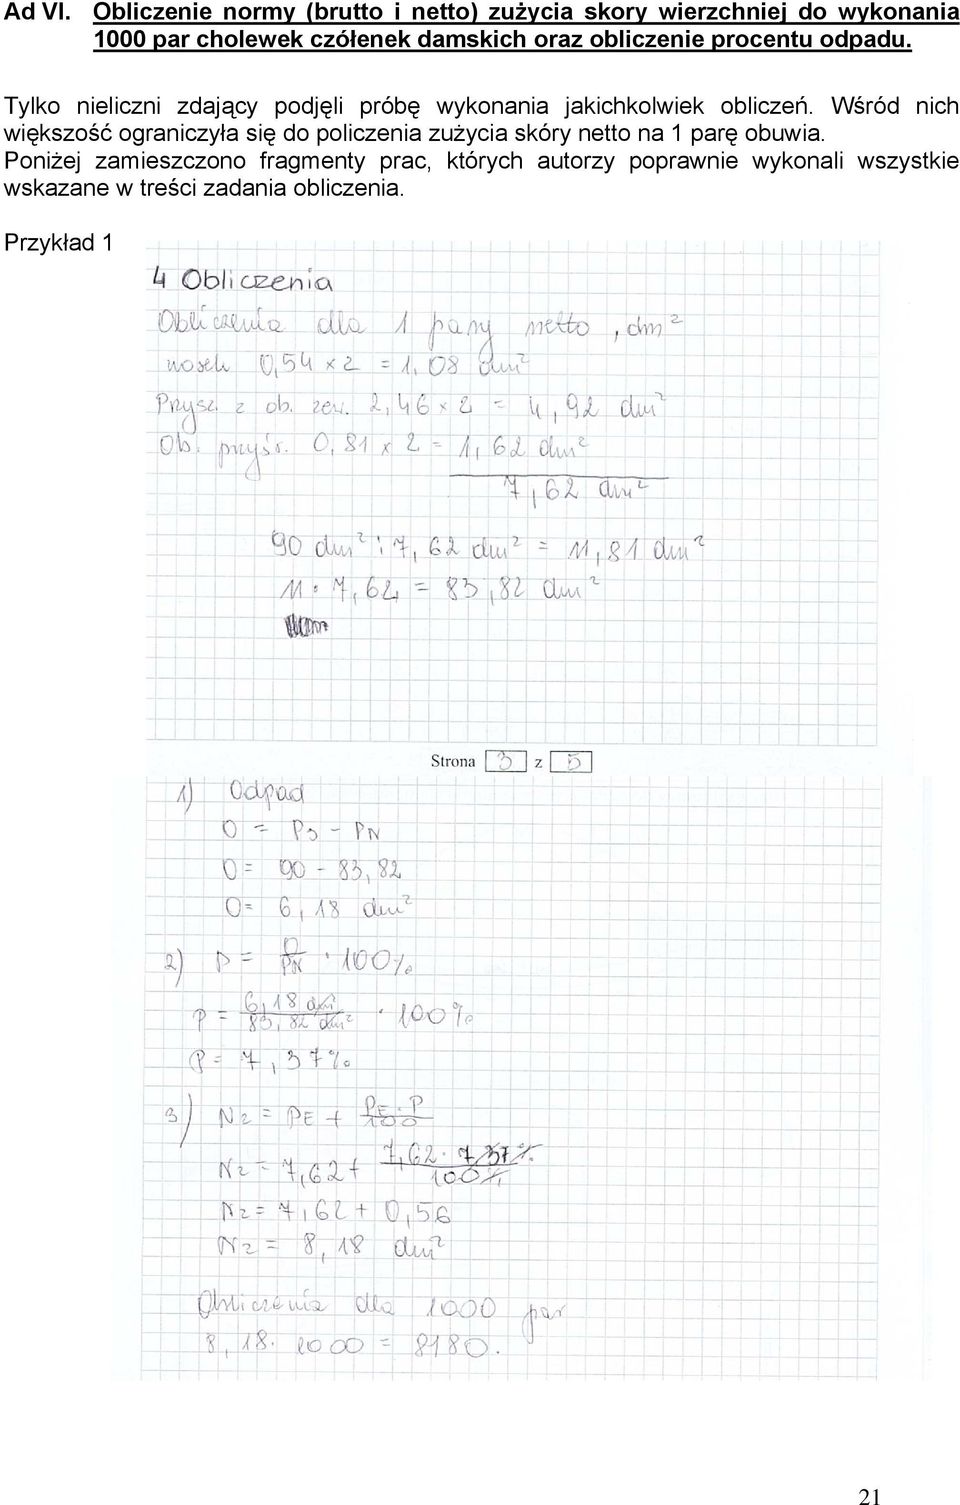 Ad VI. Obliczenie normy (brutto i netto) zużycia skory wierzchniej do wykonania
1000 par cholewek czółenek damskich oraz obliczenie procentu odpadu.
Tylko nieliczni zdający podjęli próbę wykonania jakichkolwiek obliczeń. Wśród nich
większość ograniczyła się do policzenia zużycia skóry netto na 1 parę obuwia.
Poniżej zamieszczono fragmenty prac, których autorzy poprawnie wykonali wszystkie
wskazane w treści zadania obliczenia.
Przykład 1
4 Obliczenia
Obliczenia dla 1 pary netto, dm²
nosek 0,54 x 2 = 1,08 dm²
Przysz. z ob. zew. 2,46 x 2 = 4,92 dm²
Ob. przysz. 0,81 x 2 = 1,62 dm²
7,62 dm²
90 dm² : 7,62 dm² = 11,81 dm²
11 · 7,62 = 83,82 dm²
Strona 3 z 5
1) Odpad
O = Ps - PN
O = 90 - 83,82
O = 6,18 dm²
2) P = O/PN · 100%
P = 6,18 dm²/83,82 dm² · 100%
P = 7,37%
3) Nz = PE + PE·P/100
Nz = 7,62 + 7,62 · 7,37%/100%
Nz = 7,62 + 0,56
Nz = 8,18 dm²
Obliczenia dla 1000 par
8,18 · 1000 = 8180.
21